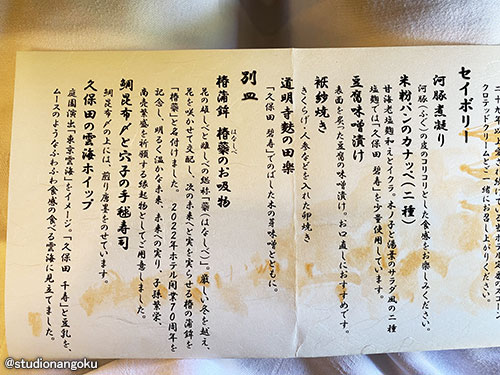 クロテッドクリームとご一緒にお召し上がりください。
セイボリー
河豚煮凝り
河豚（ふぐ）の皮のコリコリとした食感をお楽しみください。
米粉パンのカナッペ（二種）
甘海老塩麹和えとイクラ。木ノ子と湯葉のサラダ風の二種
塩麹では「久保田 碧寿」を少量使用しています。
豆腐味噌漬け
表面を炙った豆腐の味噌漬け。お口直しにおすすめです。
袱紗焼き
きくらげ・人参などを入れた卵焼き
道明寺麩の田楽
「久保田 碧寿」でのばした木の芽味噌とともに。
別皿
椿蒲鉾 椿蘂のお吸物
はなしべ
花の雄しべと雌しべの総称「蘂（はなしべ）」。厳しい冬を越え、
花を咲かせて交配し、次の未来へと実を実らせる椿の蒲鉾を
「椿蘂」と名付けました。2022年ホテル開業70周年を
記念し、明るく温かな未来、未来への実り、子孫繁栄、
商売繁盛を祈願する縁起物としてご用意しました。
鯛昆布〆と穴子の手毬寿司
鯛昆布〆の上には、煎り唐墨をのせています。
久保田の雲海ホイップ
庭園演出「東京雲海」をイメージ。「久保田 千寿」と豆乳を、
ムースのようなふわふわ食感の食べる雲海に見立てました。
@studionangoku